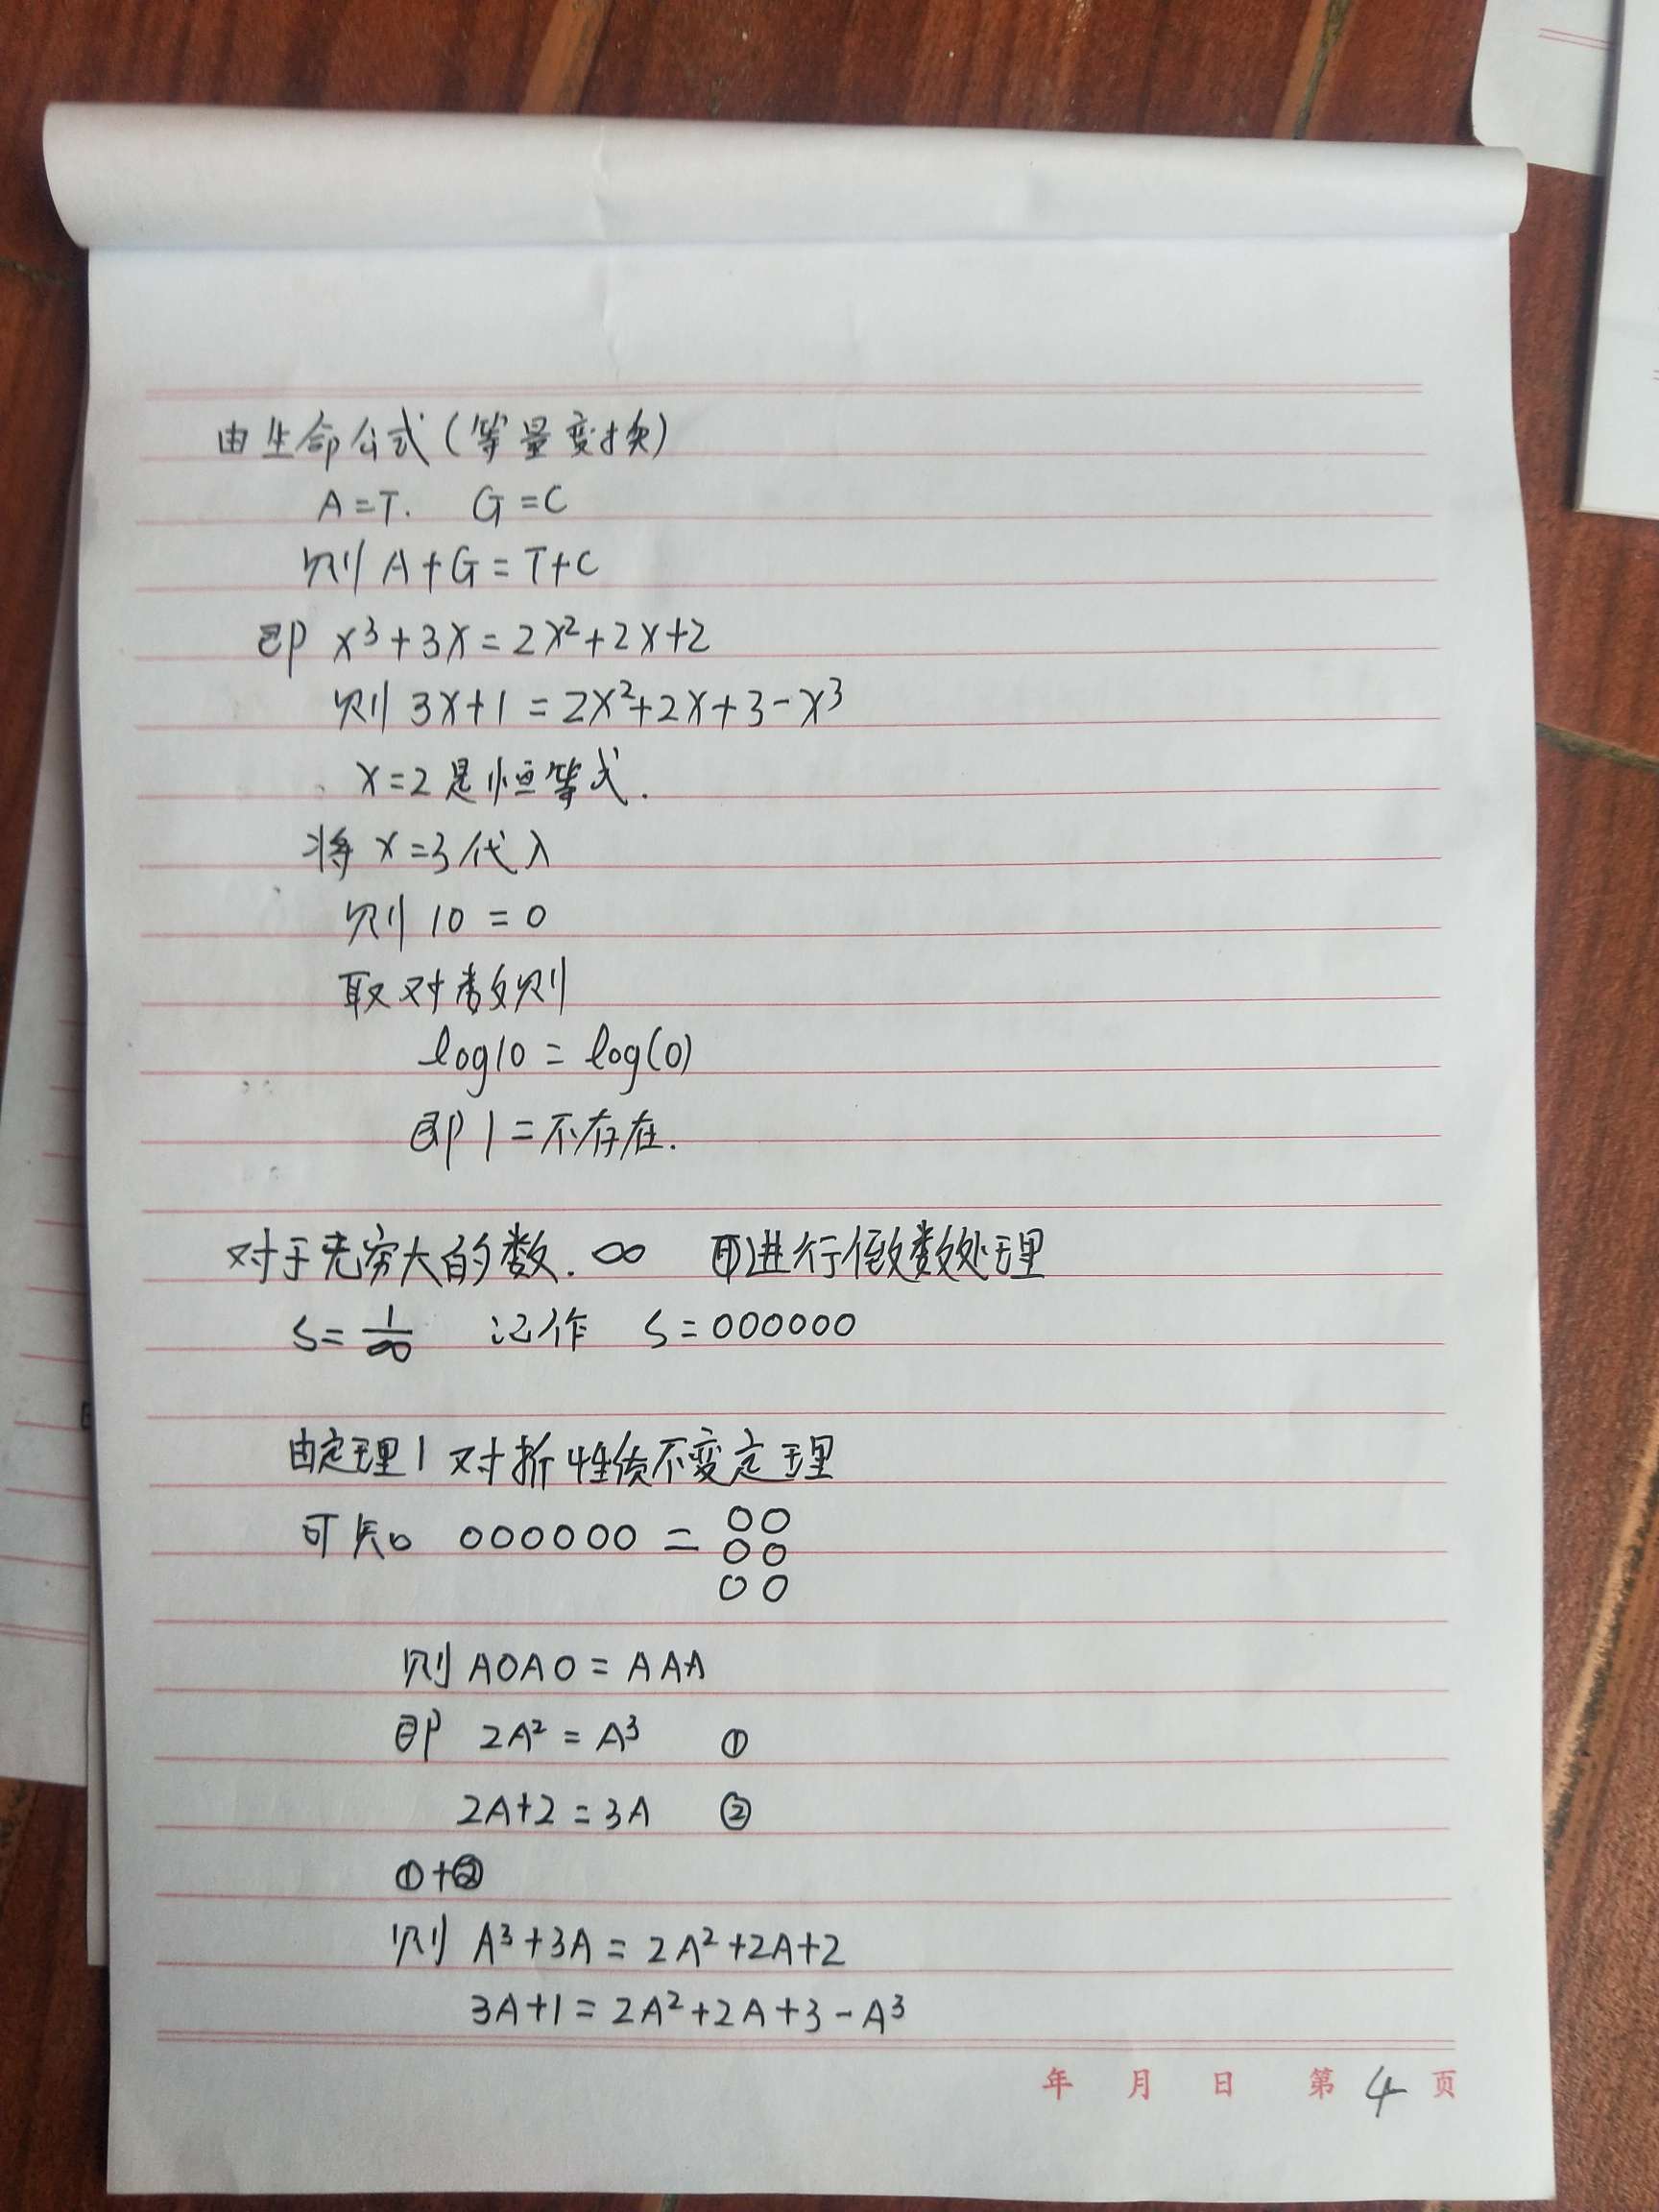 由生命公式(等量变换)
A=T. G=C
则 A+G=T+C
即 x³+3x=2x²+2x+2
则 3x+1=2x²+2x+3-x³
x=2是恒等式.
将 x=3代入
则 10=0
取对数则
log10=log(0)
即 1=不存在.
对于无穷大的数.∞ 可进行倒数处理
S=1/∞ 记作 S=000000
由定理1 对折性质不变定理
可知 000000=
00
00
00
则 A0A0=AAA
即 2A²=A³ ①
2A+2=3A ②
①+②
则 A³+3A=2A²+2A+2
3A+1=2A²+2A+3-A³
年 月 日 第 4 页